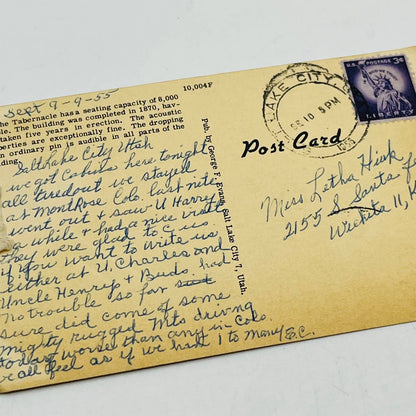 he Tabernacle has a seating capacity of 8,000
le. The building was completed in 1870, hav-
taken five years in erection. The acoustic
perties are exceptionally fine. The dropping
n ordinary pin is audible in all parts of the
ding.
10,004F
Pub. by George F. Evans, Salt Lake City 7, Utah.
Post Card
LAKE CITY
10
5 PM
U.S. POSTAGE 3¢
LIBERTY
Sept 9-9-55
Salt Lake City Utah
we got Cabins here tonight
all tired out we stayed
at MontRose Colo. last nite
went out & saw U Harry
a while & had a nice visit
They were glad to C us
if you want to write us
either at U, Charles and
Uncle Henrys + Buds. had
no trouble so far
sure did come of some
mighty rugged Mts driving
today worse than any in Colo.
we all feel as if we had 1 to many E.C.
Miss Letha Hink
2155 S Santa
Wichita 11, K